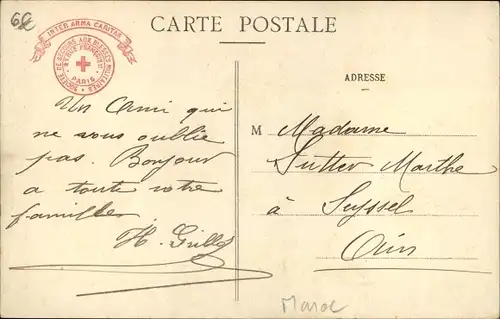 6€
CARTE POSTALE
INTER ARMA CARITAS
SOCIÉTÉ DE SECOURS AUX BLESSÉS MILITAIRES
PARIS
ADRESSE
Un Ami qui
ne vous oublie
pas. Bonjour
a toute votre
familles
H. Gilly
M Madame
Sutter Marthe
à Seyssel
Ain
Maroc